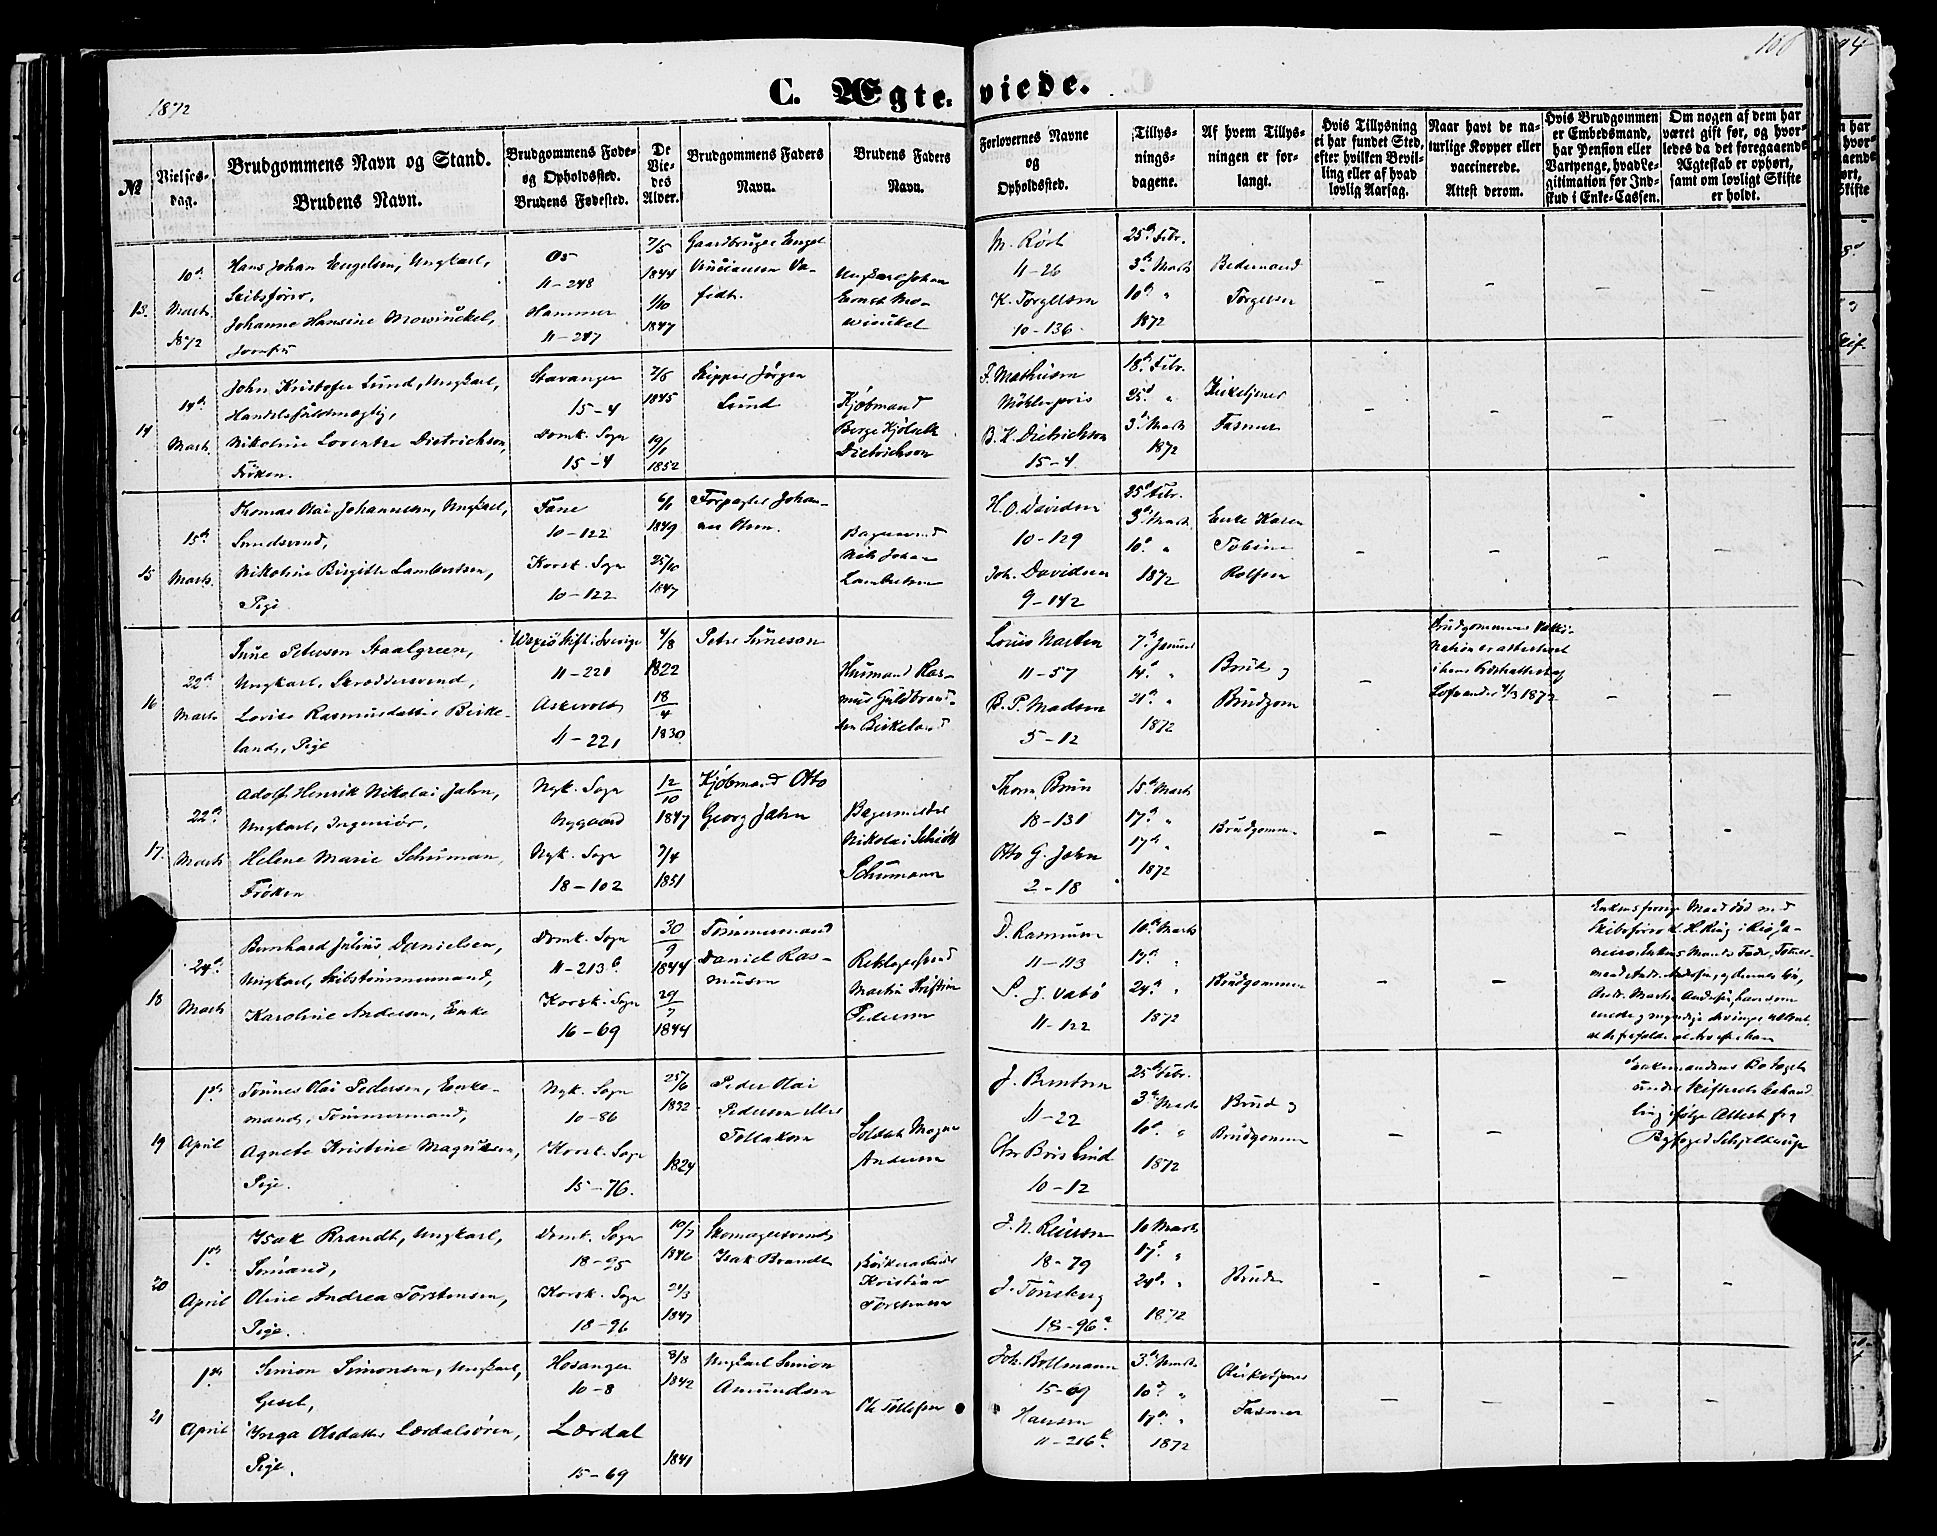 1872
C. Ægteviede.
188
94
№
Vielses-
dag.
Brudgommens Navn og Stand.
Brudens Navn.
Brudgommens Føde-
og Opholdssted.
Brudens Fødested.
De
Vie-
des
Alder.
Brudgommens Faders
Navn.
Brudens Faders
Navn.
Forlovernes Navne
og
Opholdssted.
Tillys-
nings-
dagene.
Af hvem Tillys-
ningen er for-
langt.
Hvis Tillysning
ei har fundet Sted,
efter hvilken Bevil-
ling eller af hvad
lovlig Aarsag.
Naar havt de na-
turlige Kopper eller
vaccinerede.
Attest derom.
Hvis Brudgommen
er Embedsmand,
har Pension eller
Vartpenge, hvad Le-
gitimation for Ind-
skud i Enke-Cassen.
Om nogen af dem har
været gift før, og hvor-
ledes da det foregaaende
Ægteskab er ophørt,
samt om lovligt Skifte
er holdt.
13.
10de
Marts
1872
Hans Johan Engelsen, Ungkarl,
Skibsfører,
Johanne Hansine Mowinckel,
Jomfru
Os
11-248
Hammer
11-247
7/5
1844
1/10
1847
Gaardbruger Engel
Ungkarl Johan
Ernst Mo-
winckel
M. Rørt
11-26
K. Torgelsen
10-136
25de Febr.
3de Marts
10de "
1872
Bedemand
Torgelsen
14
14de
Marts
John Kristofer Lund, Ungkarl,
Handelsfuldmægtig,
Nikoline Lorentze Dietrichson,
Frøken.
Stavanger
15-4
Domk. Sogn
15-4
7/5
1845
19/1
1852
Skipper Jørgen
Lund
Kjøbmand
Berge Kjølseth
Dietrichson
F. Mathiesen
Møhlenpris
B. K. Dietrichson
15-4
18de Febr.
25de "
3de Marts
1872
Kirketjener
Fasmer
15
15de
Marts
Thomas Olai Johannesen, Ungkarl,
Svendsvend,
Nikoline Birgitte Lambertsen,
Pige
Fane
10-122
Korsk. Sogn
10-122
6/1
1849
25/10
1847
Forpagter Johan-
nes Olsen.
Bagersvend
Nils Johan
Lambertsen
H. O. Davidsen
10-129
Joh. Davidsen
9-142
25de Febr.
3de Marts
10de "
1872
Enke Karen
Tobine
Rolfsen
16
22de
Marts
Sune Petersen Staalgreen,
Ungkarl, Skræddersvend,
Lovise Rasmusdatter Birke-
land, Pige
Wexiö Stift i Sverige
11-221
Askevold
11-221
4/8
1822
18/4
1830
Peter Suneson
Husmand Ras-
mus Guldbrand-
sen Birkeland
Louis Narten
11-57
B. P. Madsen
5-12
7de Januar
14de "
21de "
1872
Brud og
Brudgom
Brudgommens Vakci-
nation er attesteret
4/3 1872
17.
22de
Marts
Adolf Henrik Nikolai Jahn,
Ungkarl, Ingeniør,
Helene Marie Schuman,
Frøken
Nyk. Sogn
Nygaard
Nyk. Sogn
18-102
12/10
1847
7/4
1851
Kjøbmand Otto
Georg Jahn
Bagermester
Nikolai Schiøtt
Schumann
Thom. Brun
18-131
Otto G. Jahn
2-18
15de Marts
17de "
17de "
1872
Brudgommen
18
24de
Marts
Bernhard Julius Danielsen,
Ungkarl, Skibstømmermand,
Karoline Andersen, Enke
Domk. Sogn
11-213b
Korsk. Sogn
16-69
30/9
1844
29/7
1844
Tømmermand
Daniel Ras-
musen
Rebslagersvend
Martin Kristian
Pedersen
D. Rasmusen
11-113
P. J. Vabø
11-122
10de Marts
17de "
24de "
1872
Brudgommen
Enkens forrige Mand død med
19
1ste
April
Tønnes Olai Pedersen, Enke-
mand, Tømmermand,
Agnete Kristine Magnusen,
Pige.
Nyk. Sogn
10-86
Korsk. Sogn
15-76.
25/6
1832
1824
Peder Olai
Pedersen
Soldat Magne
Andersen
J. Berntsen
11-22
10-12
25de Febr.
3de Marts
10de "
1872
Brud og
Brudgommen
Enkemandens Bo taget
under Skifterets behand-
ling ifølge Attest fra
Byfoged Schjelderup
20
1ste
April
Isak Brandt, Ungkarl,
Sømand,
Oline Andrea Torstensen,
Pige.
Domk. Sogn
18-95
Korsk. Sogn
18-96
10/7
1846
21/3
1847
Skomagersvend
Isak Brandt
Kristian
Torstensen
J. N. Reiersen
18-79
J. Tønsberg
18-96a
10 Marts
17de "
24de "
1872
Bruden
21
1ste
April
Simon Simonsen, Ungkarl,
Gesel,
Inga Olsdatter Lærdalsøren,
Pige.
Hosanger
10-8
Lærdal
15-69
8/8
1842
1841
Ungkarl Simon
Amundsen
Ole Tollefsen
Joh. Bollmann
15-69
Hansen
11-216b
3de Marts
10de "
17de "
1872
Kirketjener
Fasmer